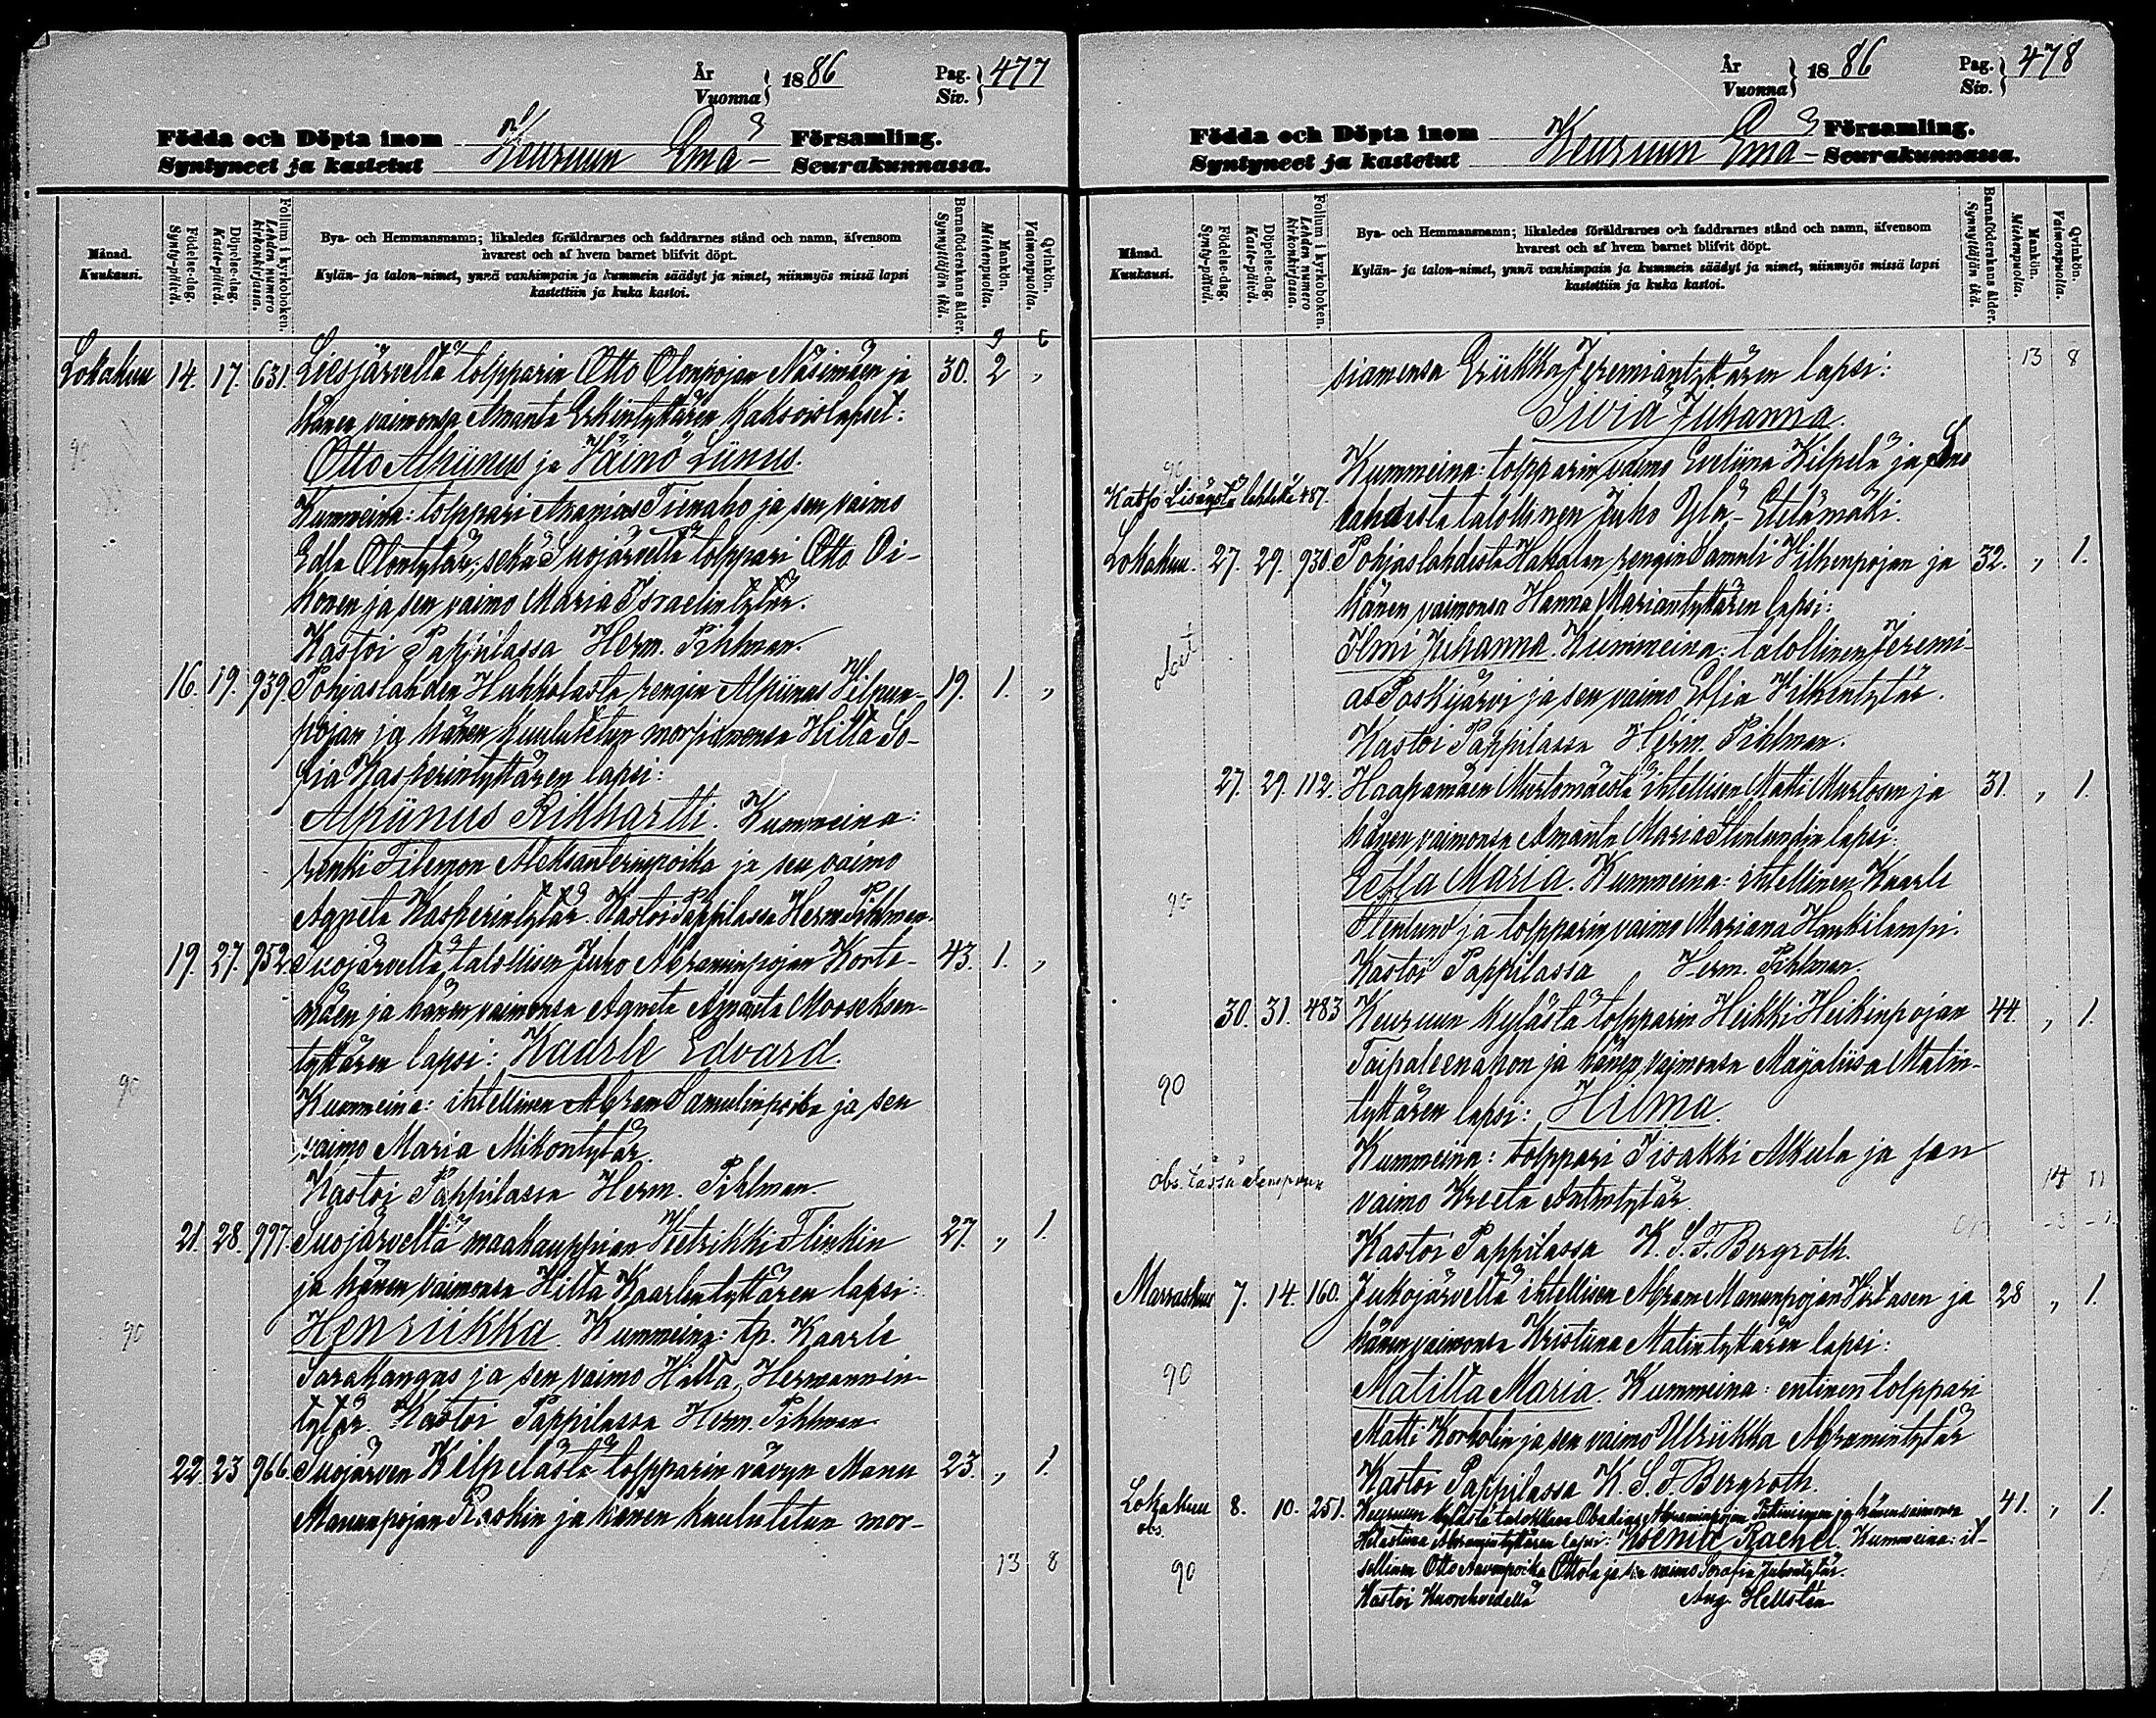 År
Vuonna } 1886 Pag.
Siv. } 477
Födda och Döpta inom Keuruun Emä- Församling.
Syntyneet ja kastetut Seurakunnassa.
Månad.
Kuukausi.
Födelse-dag.
Synty-päivä.
Döpelse-dag.
Kaste-päivä.
Folium i kyrkoboken.
Lehden numero kirkonkirjassa.
Bya- och Hemmansnamn; likaledes föräldrarnes och faddrarnes stånd och namn, äfvensom
hvarest och af hvem barnet blifvit döpt.
Kylän- ja talon-nimet, ynnä vanhimpain ja kummein säädyt ja nimet, niinmyös missä lapsi
kastettiin ja kuka kastoi.
Barnaföderskans ålder.
Synnyttäjän ikä.
Mankön.
Miehenpuolia.
Qvinkön.
Vaimonpuolia.
9 6
Lokakuu 14. 17. 631. Liesjärveltä tolpparin Otto Olonpojan Näsimäen ja 30. 2 "
hänen vaimonsa Amanta Erkintyttären kaksoislapset:
90
Otto Alpiinus ja Väinö Liinus.
Kummeina: tolppari Ananias Tienaho ja sen vaimo
Edla Olontytär, sekä Suojärveltä tolppari Otto Oi-
konen ja sen vaimo Maria Israelintytär.
Kastoi Pappilassa Herm. Pihlman.
16. 19. 939. Pohjaslahden Huhkolasta rengin Alpiinus Vilpun- 19. 1. "
pojan ja hänen kuulutetun morsiamensa Hilta So-
fia Kasperintyttären lapsi:
Alpiinus Rikhartti. Kummeina:
renki Filemon Aleksanterinpoika ja sen vaimo
Agneta Kasperintytär. Kastoi Pappilassa Herm. Pihlman.
19. 27. 952. Suojärveltä talollisen Juho Abraminpojan Korte- 43. 1. "
mäen ja hänen vaimonsa Agneta Amanta Mooseksen-
tyttären lapsi: Kaarle Edvard.
90
Kummeina: ihtellinen Abram Samulinpoika ja sen
vaimo Maria Mikontytär.
Kastoi Pappilassa Herm. Pihlman.
21. 28. 997. Suojärveltä maakauppian Vietrikki Flinkin 27. " 1.
ja hänen vaimonsa Hilta Kaarlentyttären lapsi:
90
Henriikka. Kummeina: tp. Kaarle
Sarakangas ja sen vaimo Hilta Hermannin-
tytär. Kastoi Pappilassa Herm. Pihlman.
22. 23 966. Suojärven Kilpelästä tolpparin vävyn Manu 23. " 1.
Manunpojan Raskin ja hänen kuulutetun mor-
13 8
År
Vuonna } 1886 Pag.
Siv. } 478
Födda och Döpta inom Keuruun Emä- Församling.
Syntyneet ja kastetut Seurakunnassa.
Månad.
Kuukausi.
Födelse-dag.
Synty-päivä.
Döpelse-dag.
Kaste-päivä.
Folium i kyrkoboken.
Lehden numero kirkonkirjassa.
Bya- och Hemmansnamn; likaledes föräldrarnes och faddrarnes stånd och namn, äfvensom
hvarest och af hvem barnet blifvit döpt.
Kylän- ja talon-nimet, ynnä vanhimpain ja kummein säädyt ja nimet, niinmyös missä lapsi
kastettiin ja kuka kastoi.
Barnaföderskans ålder.
Synnyttäjän ikä.
Mankön.
Miehenpuolia.
Qvinkön.
Vaimonpuolia.
siamensa Eriikka Jeremiantyttären lapsi: 13 8
Siviä Juhanna.
90
Kummeina: tolpparin vaimo Eveliina Kilpelä ja
Katso Lisäystä lehdeltä 487.
lahdesta talollinen Juho Ylä-Etelämäki.
Lokakuu. 27. 29. 930. Pohjaslahdesta Hakalan rengin Samuli Vilhenpojan ja 32. " 1.
hänen vaimonsa Hanna Mariantyttären lapsi:
obiit
Ilmi Juhanna. Kummeina: talollinen Jeremi-
as Poskijärvi ja sen vaimo Eefia Vilhentytär.
Kastoi Pappilassa Herm. Pihlman.
27. 29. 112. Haapamäen Mustomäestä ihtellisen Matti Murtosen ja 31. " 1.
hänen vaimonsa Amanta Maria Stenlundin lapsi:
90
Kummeina: ihtellinen Kaarle
Stenlund ja tolpparin vaimo Mariana Haukilampi.
Kastoi Pappilassa Herm. Pihlman.
30. 31. 483 Keuruun kylästä tolpparin Heikki Heikinpojan 44. " 1.
Taipaleenahon ja hänen vaimonsa Majaliisa Matin-
90
tyttären lapsi: Hilma.
Kummeina: tolppari Iisakki Alkula ja sen
obs. tässä
vaimo Kreeta Antintytär. 14 11
Kastoi Pappilassa K. S. F. Bergroth.
Marraskuu 7. 14. 160. Jukojärveltä ihtellisen Abram Manunpojan Virtasen ja 28 " 1.
hänen vaimonsa Kristiina Matintyttären lapsi:
90
Matilta Maria. Kummeina: entinen tolppari
Matti Korholin ja sen vaimo Ulriikka Abramintytär
Kastoi Pappilassa K. S. F. Bergroth.
Lokakuu 8. 10. 251. Keuruun kylästä talollisen Obadias Abraminpojan ja hänen vaimonsa 41. " 1.
obs.
Abramintyttären lapsi: Rachel. Kummeina: it-
90
sellinen Otto Aaponpoika Ottola ja sen vaimo Serafia Juhontytär.
Kastoi Kuorehvedellä Aug. Hellstén